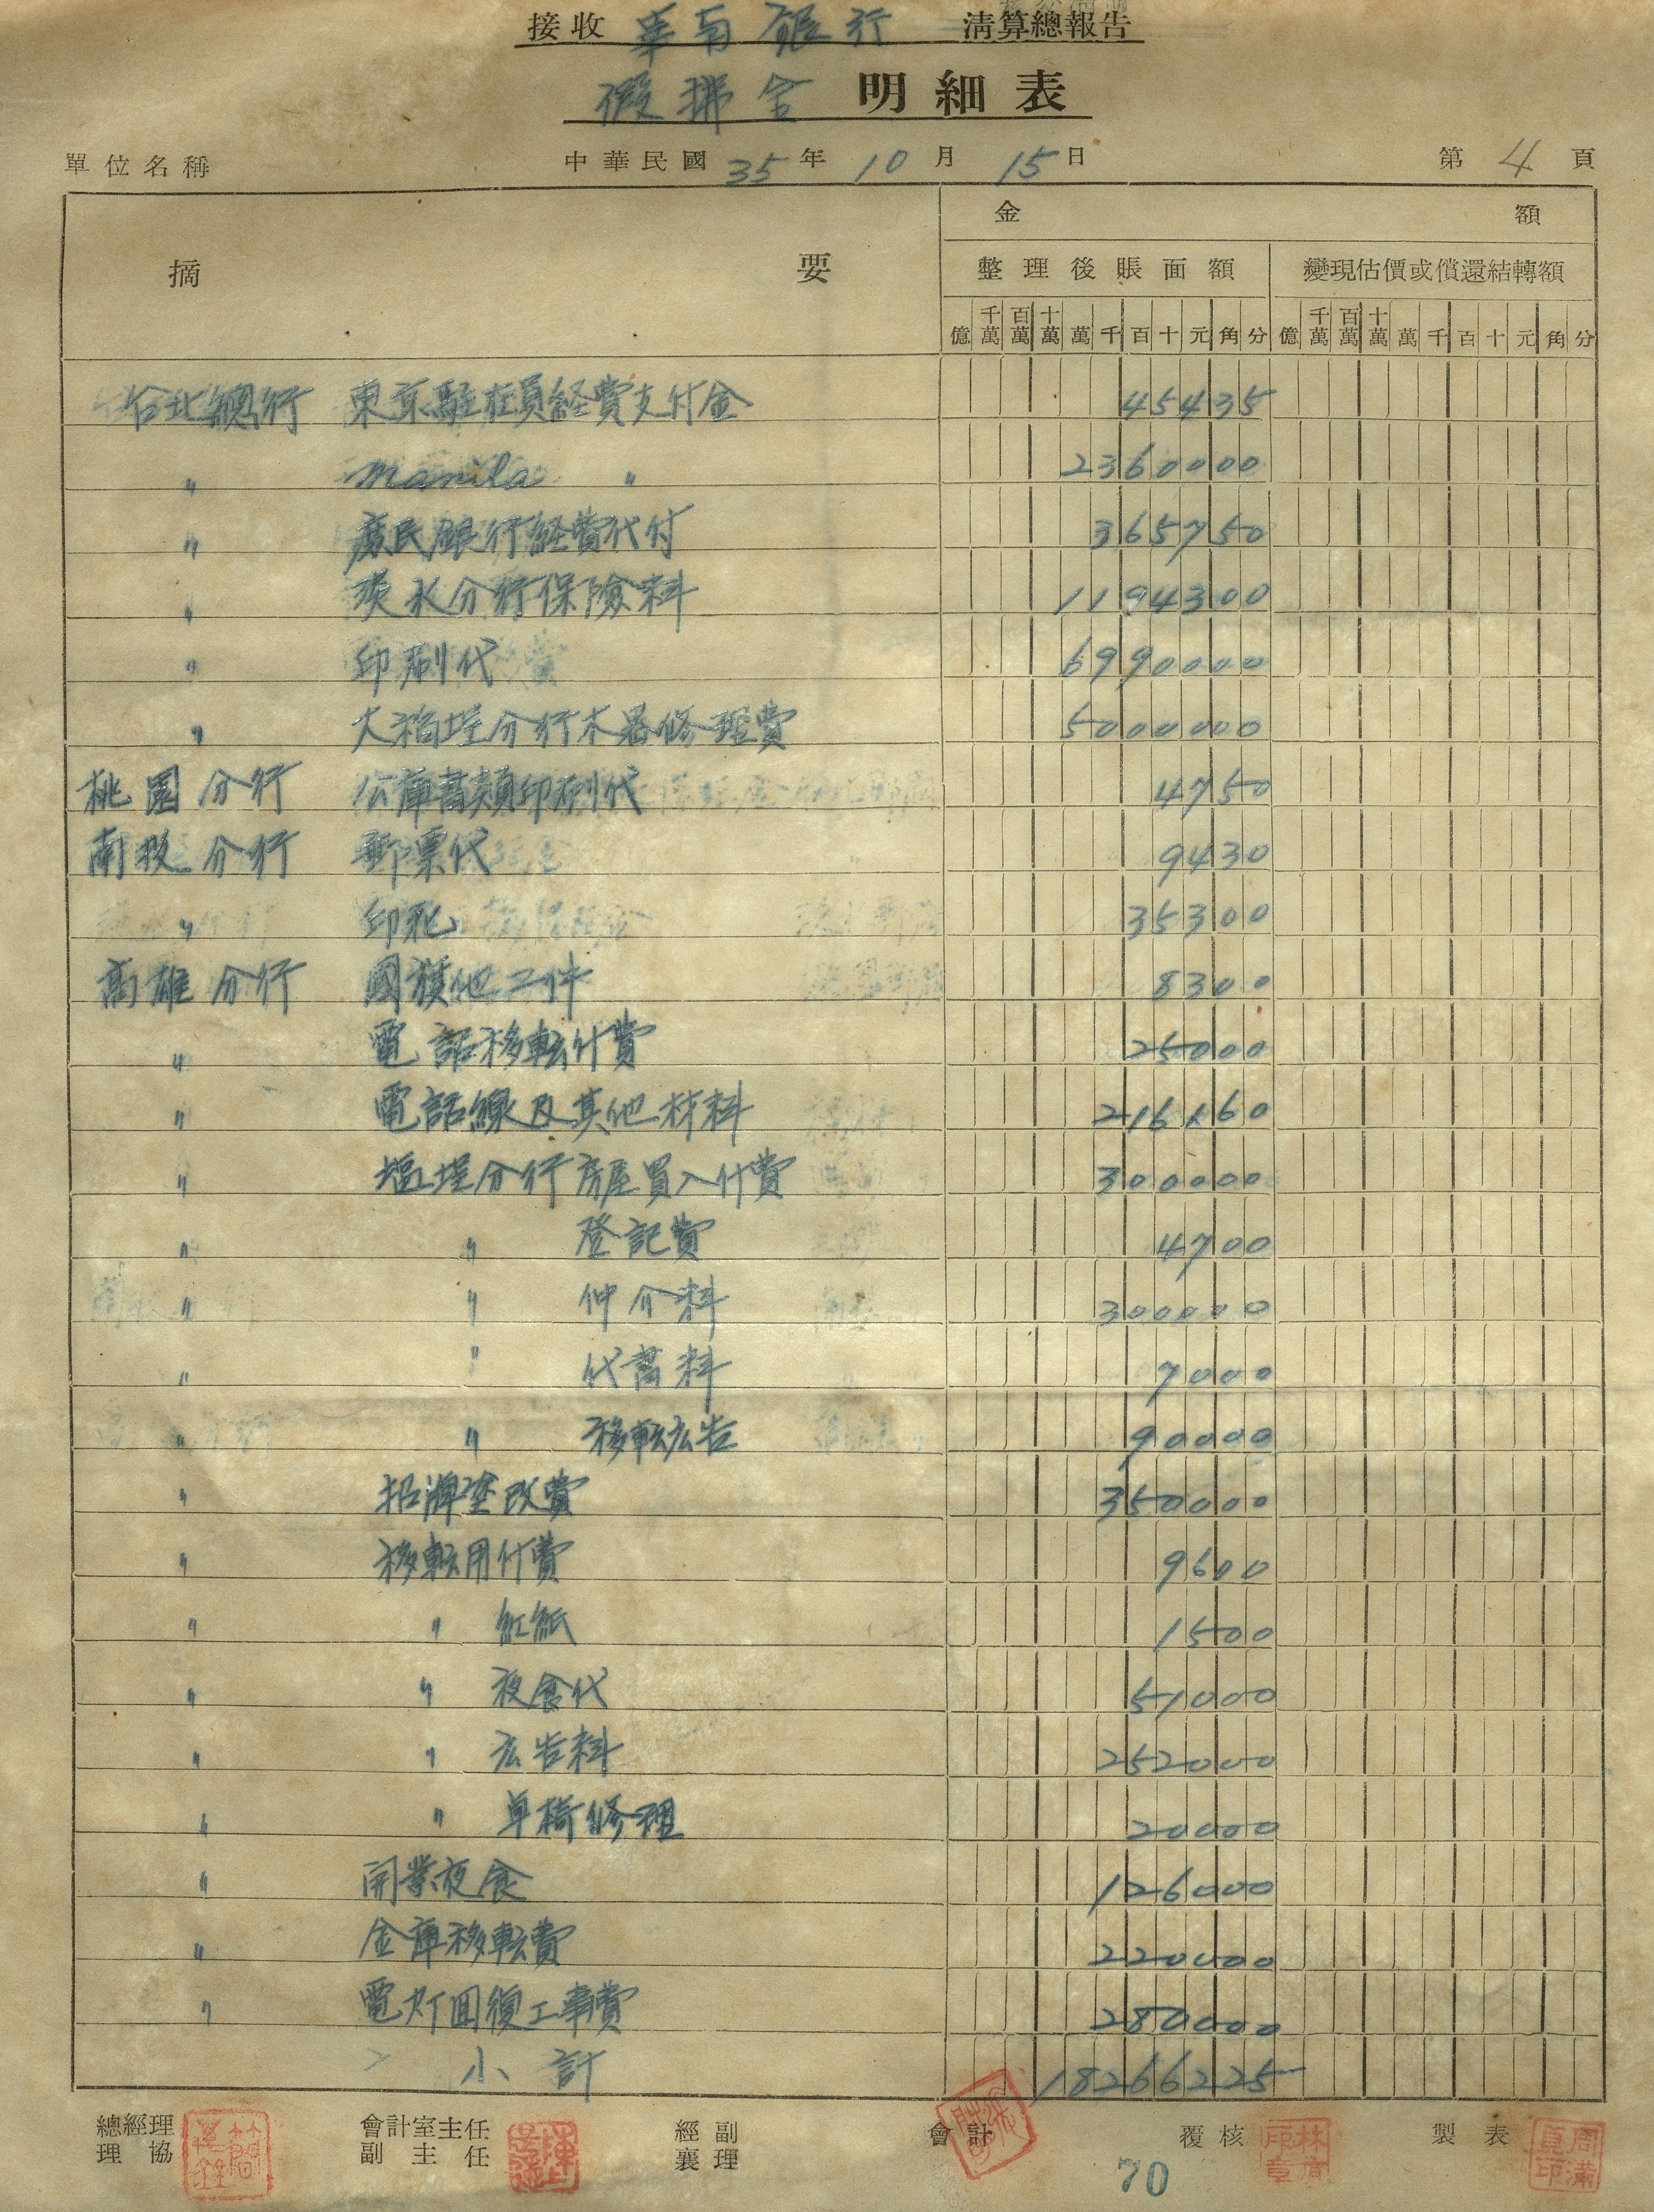 接收 華南銀行 清算總報告
假拂金 明細表
單位名稱 中華民國 35 年 10 月 15 日 第 4 頁
摘 要 金 額
整理後賬面額 變現估價或償還結轉額
億 千萬 百萬 十萬 萬 千 百 十 元 角 分 億 千萬 百萬 十萬 萬 千 百 十 元 角 分
台北總行 東京駐在員経費支付金 45435
〃 Manila 〃 2360000
〃 廣民銀行経費代付 365750
〃 淡水分行保險料 1194300
〃 印刷代 6990000
〃 大稻埕分行木器修理費 5000000
桃園分行 公庫書類印刷代 4750
南投分行 郵票代 9430
〃 印鉱 35300
高雄分行 國旗他二件 8300
〃 電話移転付費 25000
〃 電話線及其他材料 216160
〃 塩埕分行房屋買入付費 300000
〃 〃 登記費 4700
〃 〃 仲介料 300000
〃 〃 代書料 7000
〃 〃 移転広告 90000
〃 招牌塗改費 350000
〃 移転用付費 9600
〃 〃 紅紙 1500
〃 〃 夜食代 51000
〃 〃 広告料 252000
〃 〃 卓椅修理 20000
〃 開業夜食 126000
〃 金庫移転費 220000
〃 電灯回復工事費 280000
小計 18266225
總經理 會計室主任 經副 會計 覆核 製表
理 協 副主任 襄理
70